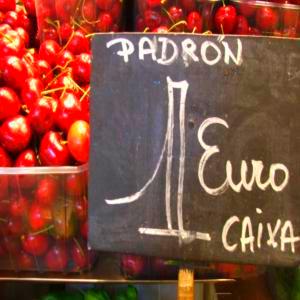 PADRÓN
1 Euro
CAIXA